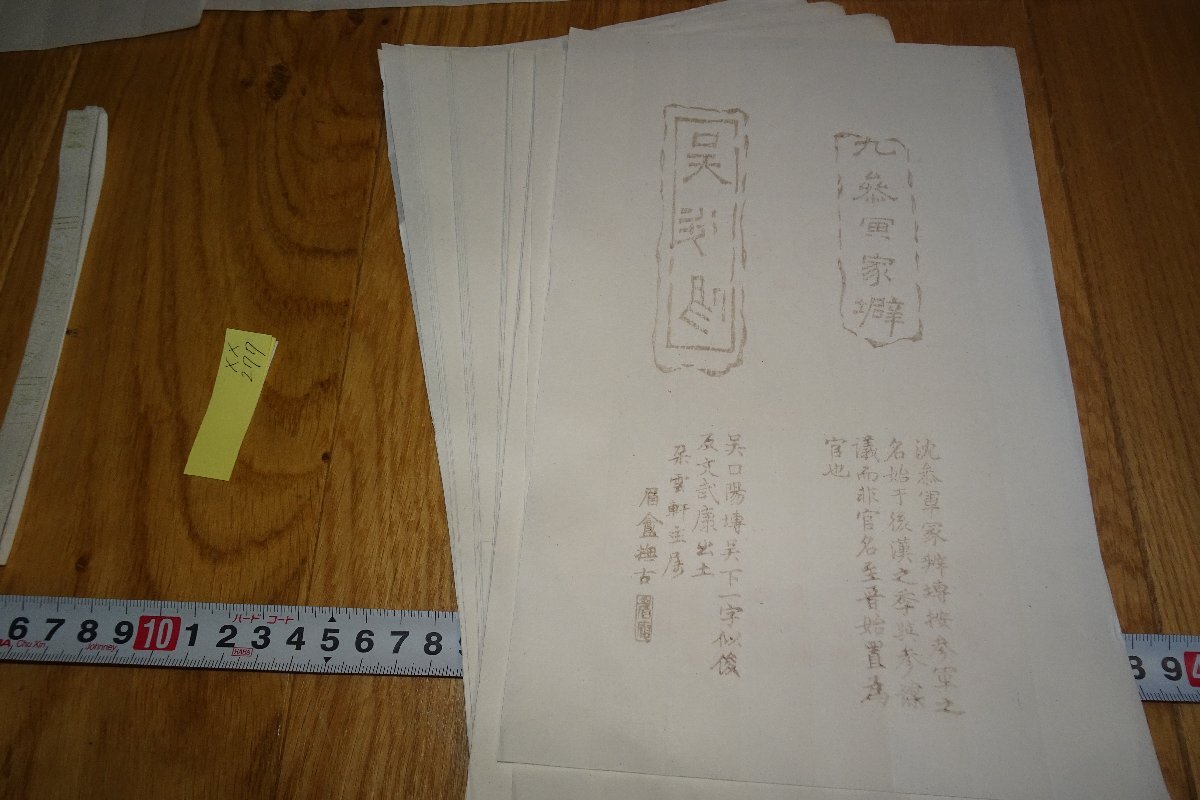 九參軍冢壀
沈參軍冢壀塼按參軍之
名始于後漢之季
議而非官名至晉始置為
官也
吴
吴口陽塼吴下一字似俊
反文武康出土
朵雲軒主屬
眉盦撫古
XX
277
6 7 8 9 10 1 2 3 4 5 6 7 8
Chu Xin
Johnney
ハード コート
8 9 4